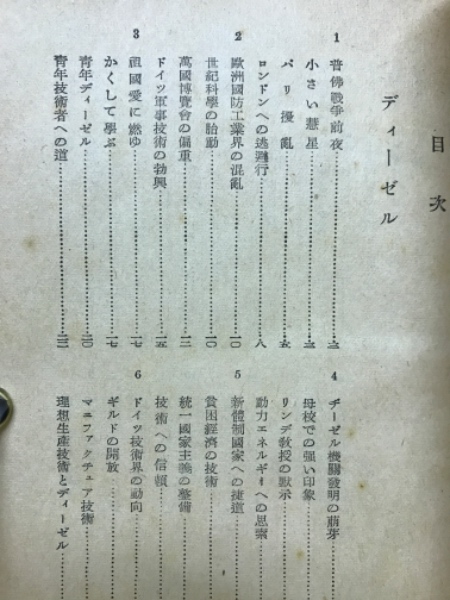 目次
ディーゼル
1 普佛戰爭前夜……三
小さい彗星……三
パリ擾亂……五
ロンドンへの逃避行……八
2 歐洲國防工業界の混亂……一〇
世紀科學の胎動……一〇
萬國博覽會の偏重……一二
ドイツ軍事技術の勃興……一五
3 祖國愛に燃ゆ……一七
かくして學ぶ……一七
靑年ディーゼル……二〇
靑年技術者への道……二二
4 ヂーゼル機關發明の萠芽
母校での强い印象
リンデ敎授の默示
動力エネルギーへの思索
5 新體制國家への捷道
貧困經濟の技術
統一國家主義の整備
技術への信賴
6 ドイツ技術界の動向
ギルドの開放
マニファクチュア技術
理想生產技術とディーゼル